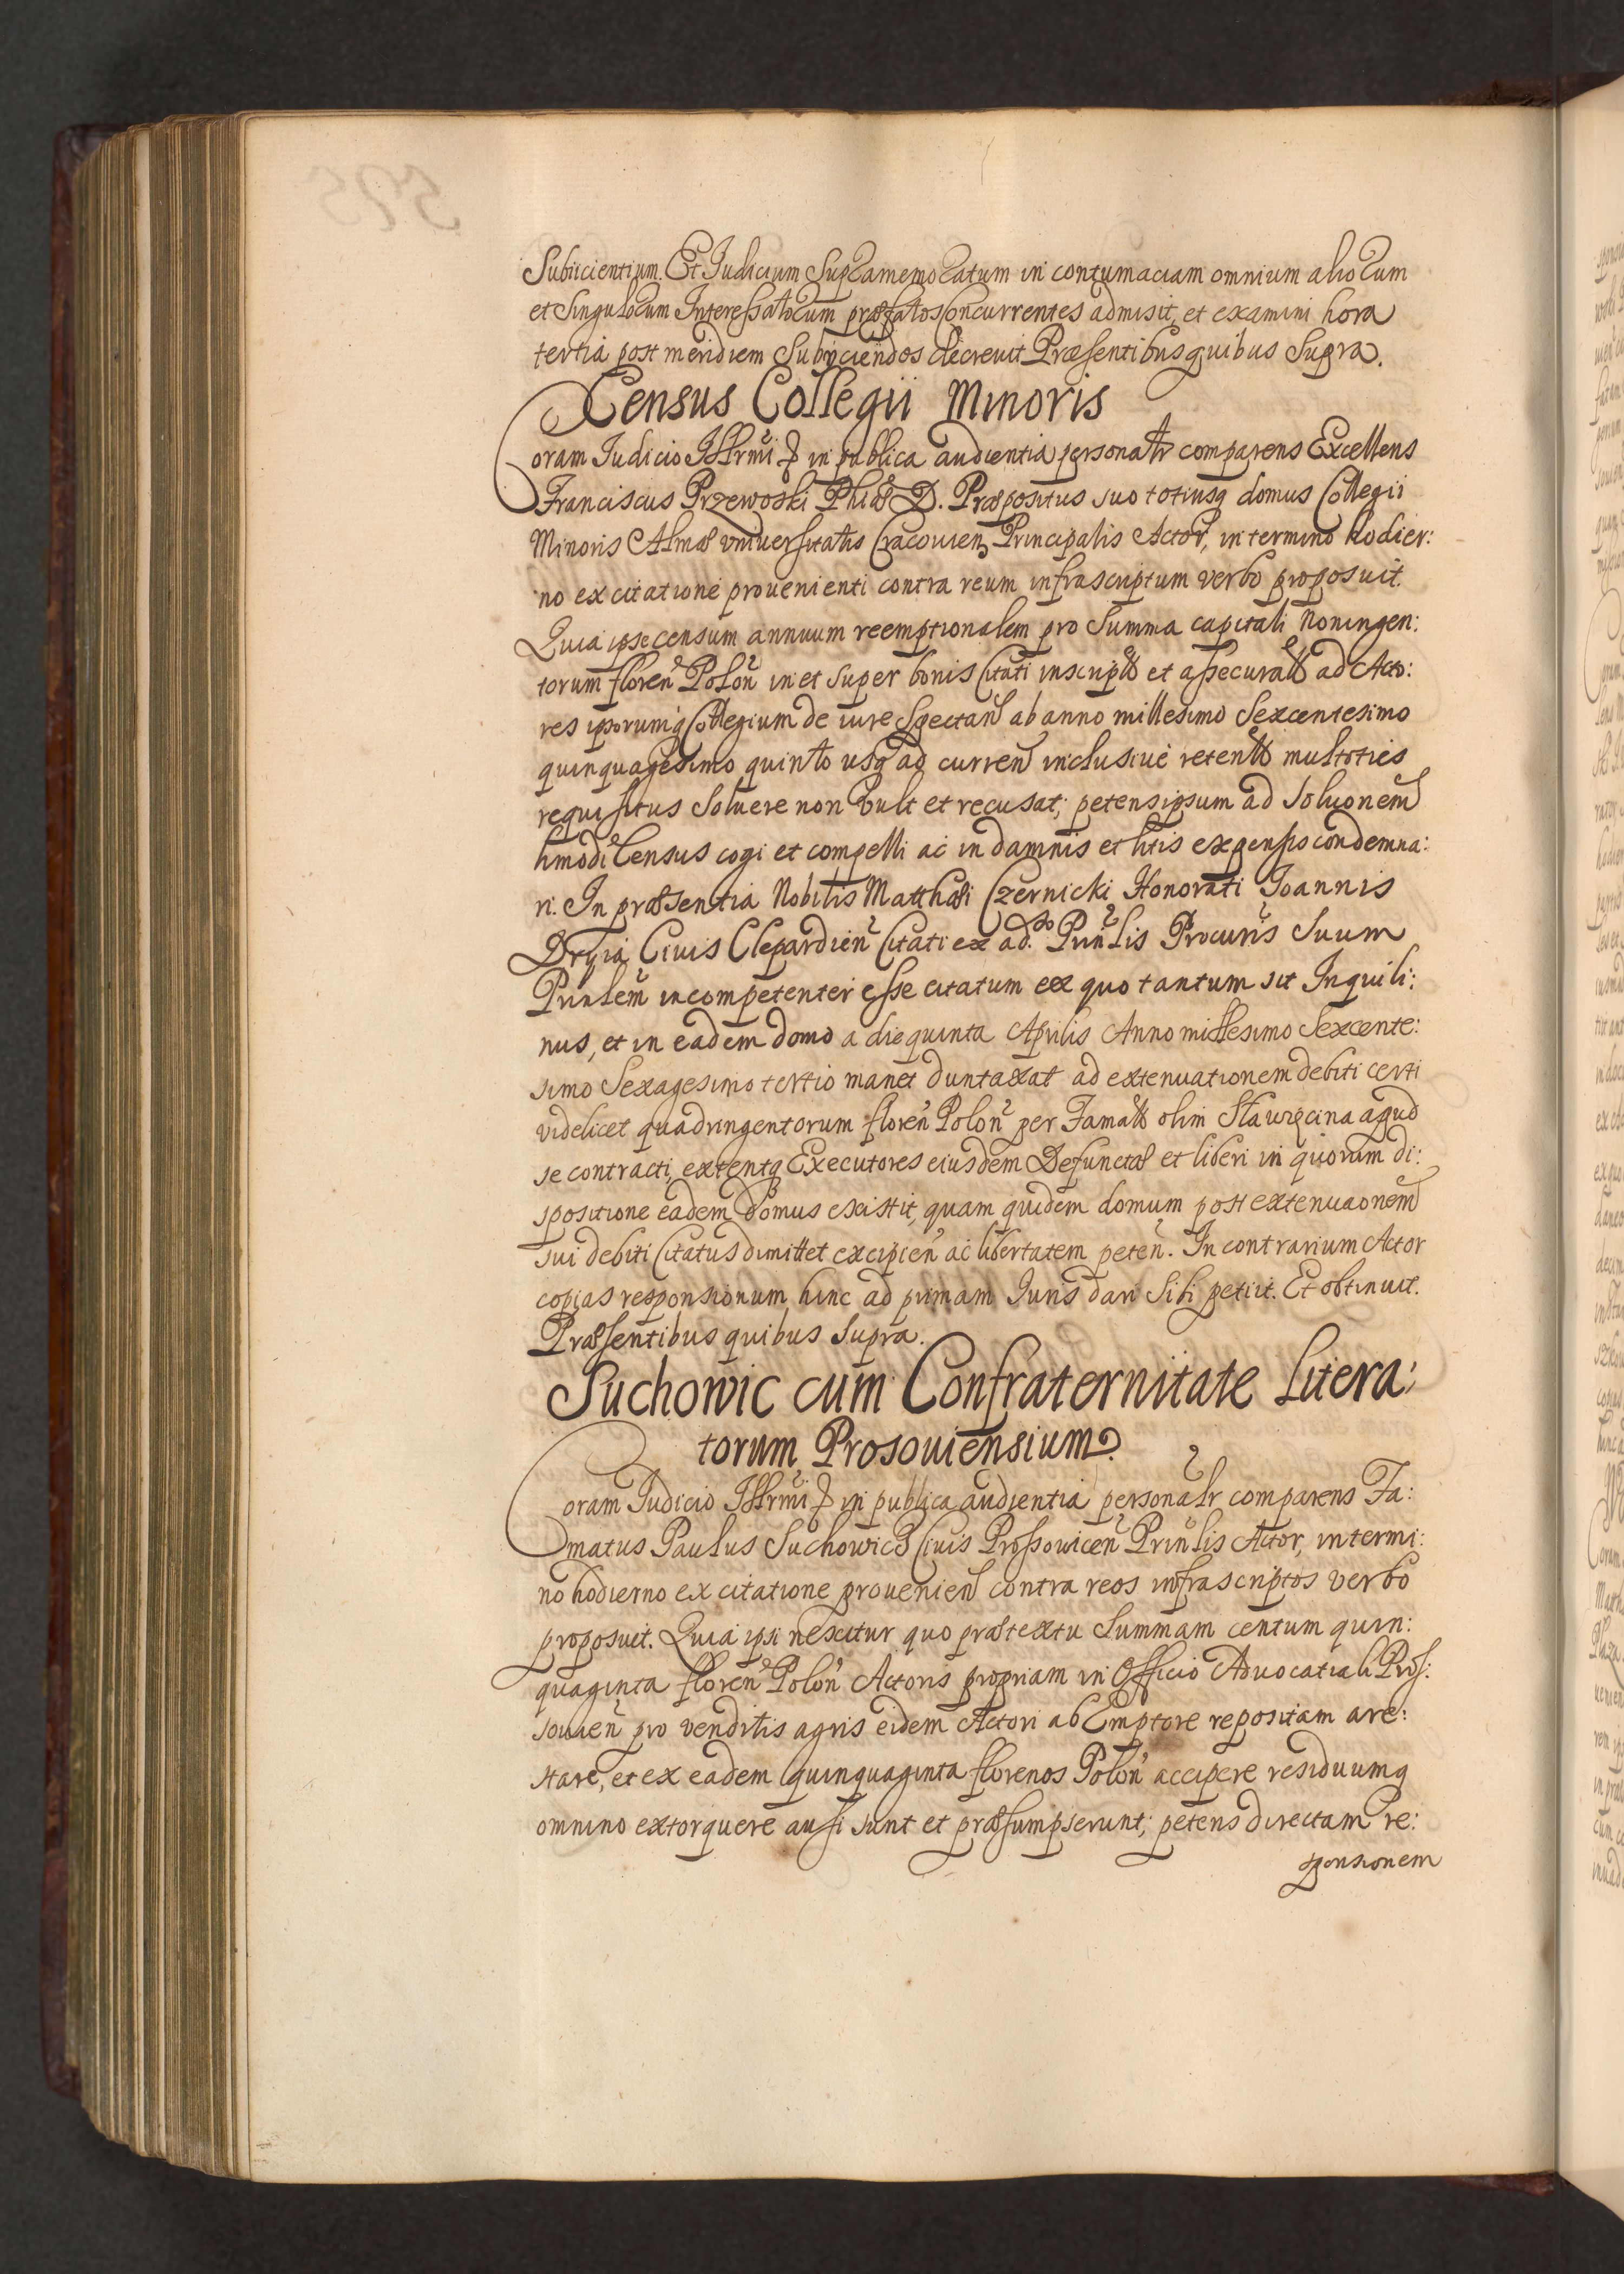 Subiicientium. Et Iudicium Supramemoratum in contumaciam omnium aliorum
et Singulorum Interessatorum præfatos Concurrentes admisit, et examini hora
tertia post meridiem Subijciendos decrevit Præsentibus quibus Supra.
Census Collegii Minoris
Coram Iudicio Illrmi in publica audientia personaltr comparens Excellens
Franciscus Przewoski Phiæ D. Præpositus suo totiusq domus Collegii
Minoris Almæ universitatis Cracouien Principalis Actor, in termino hodier:
no ex citatione provenienti contra reum infrascriptum verbo proposuit.
Quia ipse censum annuum reemptionalem pro Summa capitali Noningen:
torum floren Polon in et super bonis Citati inscript et assecurat ad Acto:
res ipsorumq Collegium de iure Spectan ab anno millesimo Sexcentesimo
quinquagesimo quinto usq ad curren inclusive retent multoties
requisitus Soluere non vult et recusat; petens ipsum ad Soluonem
hmodi Census cogi et compelli ac in damnis et litis expensis condemna:
ri. In præsentia Nobilis Matthæi Czernicki Honorati Joannis
Dryia Civis Clepardien Citati ex ad.so Prinlis Procuris Suum
Prinlem incompetenter esse citatum ex quo tantum sit Inquili:
nus, et in eadem domo a die quinta Aprilis Anno millesimo Sexcente:
simo Sexagesimo tertio manet duntaxat ad extenuationem debiti certi
videlicet quadringentorum floren Polon per Famat olim apud
se contracti, extentq Executores eiusdem Defunctæ et liberi in quorum di:
spositione eadem Domus existit, quam quidem domum post extenuaonem
sui debiti Citatus dimittet excipien ac libertatem peten. In contrarium Actor
copias responsionum hinc ad primam Iuris dari Sibi petiit. Et obtinuit.
Præsentibus quibus Supra.
Suchowic cum Confraternitate Litera:
torum Prosouiensium
Coram Iudicio Illrmi in publica audientia personaltr comparens Fa:
matus Paulus Suchowicz Civis Prossowicen Prinlis Actor, in termi:
no hodierno ex citatione provenien contra reos infrascriptos verbo
proposuit. Quia ipsi nescitur quo prætextu Summam centum quin:
quaginta floren Polon Actoris propriam in Officio Advocatiali Pros:
souien pro venditis agris eidem Actori ab Emptore repositam are:
stare, et ex eadem quinquaginta florenos Polon accipere residuumq
omnino extorquere ausi sunt et præsumpserunt; petens directam re:
sponsionem